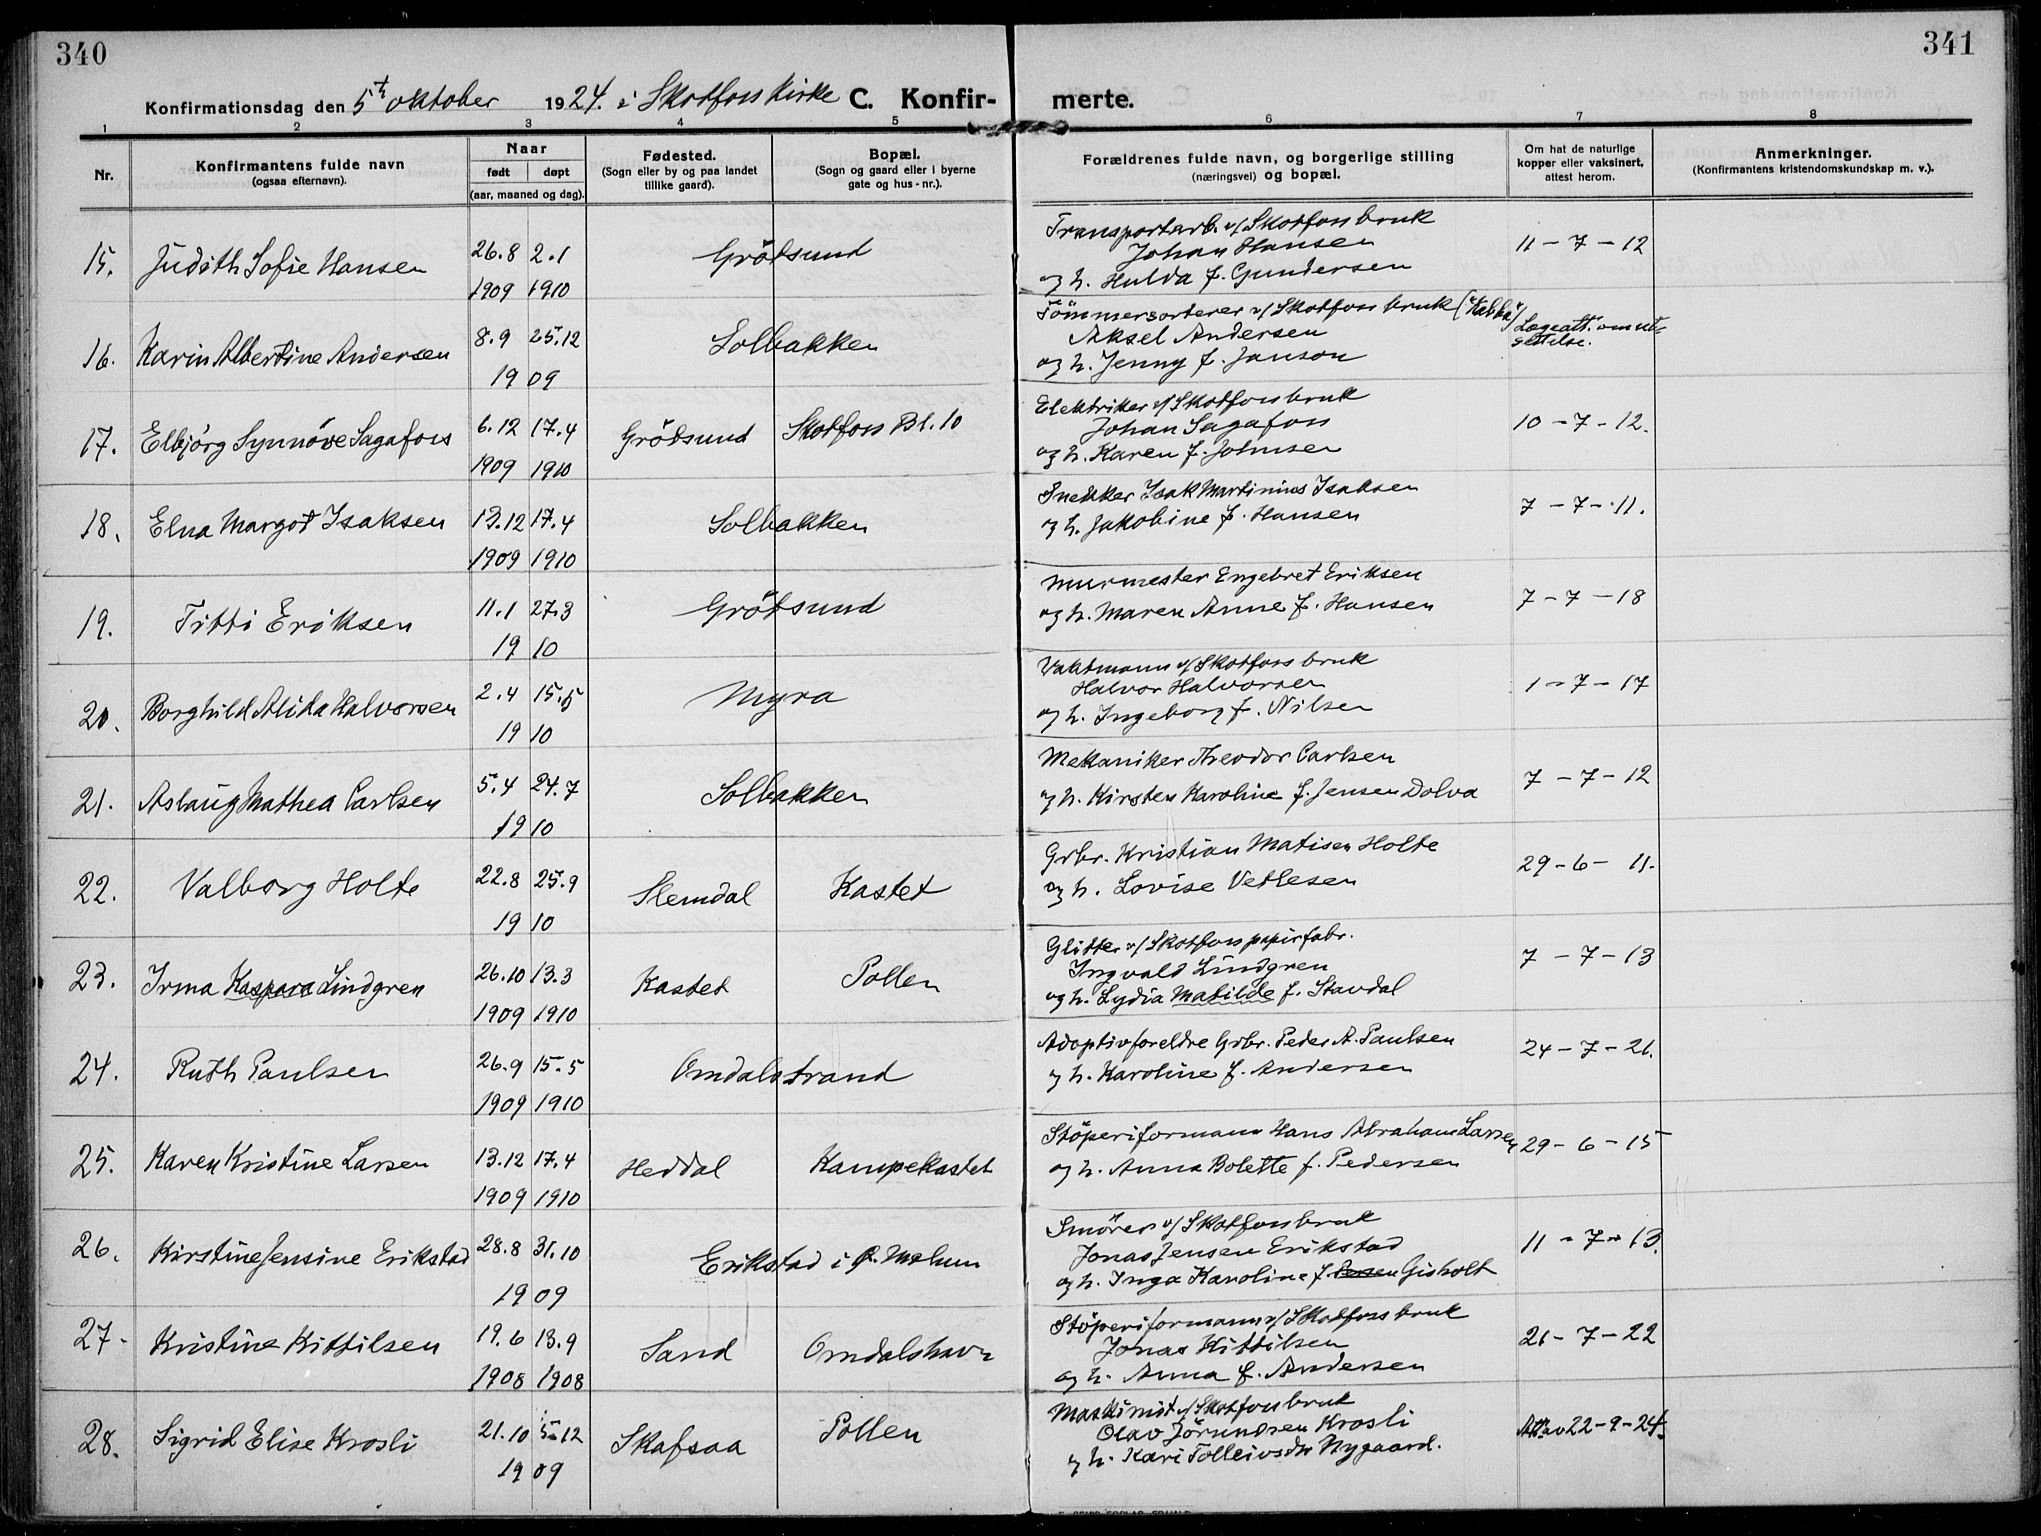 340
341
Konfirmationsdag den 5te oktober 1924. i Skotfoss Kirke C. Konfir-
merte.
1 2 3 4 5 6 7 8
Nr.
Konfirmantens fulde navn
(ogsaa efternavn).
Naar
født døpt
(aar, maaned og dag).
Fødested.
(Sogn eller by og paa landet
tillike gaard).
Bopæl.
(Sogn og gaard eller i byerne
gate og hus-nr.).
Forældrenes fulde navn, og borgerlige stilling
(næringsvei) og bopæl.
Om hat de naturlige
kopper eller vaksinert,
attest herom.
Anmerkninger.
(Konfirmantens kristendomskundskap m. v.).
15. Judith Sofie Hansen 26.8 2.1 Grötsund
1909 1910
Transportarb. v/ Skotfoss bruk
Johan Hansen
og h. Hulda f. Gundersen
11 - 7 - 12
16. Karin Albertine Andersen 8.9 25.12 Solbakken
19 09
Tömmersorterer v/ Skotfoss bruk
Aksel Andersen
og h. Jenny f. Janson
Lægeatt. om ut-
settelse.
17. Elbjörg Synnöve Sagafoss 6.12 17.4 Grötsund Skotfoss Bl. 10
1909 1910
Elektriker v/ Skotfoss bruk
Johan Sagafoss
og h. Karen f. Johnsen
10 - 7 - 12.
18. Elna Margot Isaksen 13.12 17.4 Solbakken
1909 1910
Snekker Isak Martinius Isaksen
og h. Jakobine f. Hansen
7 - 7 - 11.
19. Titti Eriksen 11.1 27.3 Grötsund
19 10
Murmester Engebret Eriksen
og h. Maren Anne f. Hansen
7 - 7 - 18
20. Borghild Alida Halvorsen 2.4 15.5 Myra
19 10
Vaktmann v/ Skotfoss bruk
Halvor Halvorsen
og h. Ingeborg f. Nilsen
1 - 7 - 17
21. Aslaug Mathea Carlsen 5.4 24.7 Solbakken
19 10
Mekaniker Theodor Carlsen
og h. Kirsten Karoline f. Jensen Dolva
7 - 7 - 12
22. Valborg Holte 22.8 25.9 Slemdal Kastet
19 10
Grbr. Kristian Matisen Holte
og h. Lovise Vetlesen
29 - 6 - 11.
23. Irma Kaspara Lindgren 26.10 13.3 Kastet Pollen
1909 1910
Glitter v/ Skotfoss papirfabr.
Ingvald Lindgren
og h. Lydia Matilde f. Stavdal
7 - 7 - 13
24. Ruth Paulsen 26.9 15.5 Omdalstrand
1909 1910
Adoptivforeldre Grbr. Peder A. Paulsen
og h. Karoline f. Andersen
24 - 7 - 21.
25. Karen Kristine Larsen 13.12 17.4 Heddal Kampekastet
1909 1910
Stöperiformann Hans Abraham Larsen
og h. Anna Bolette f. Pedersen
29 - 6 - 15
26. Kirstine Jensine Erikstad 28.8 31.10 Erikstad i Melum
19 09
Smörer v/ Skotfoss bruk
Jonas Jensen Erikstad
og h. Inga Karoline f. Gisholt
11 - 7 - 13.
27. Kristine Kittilsen 19.6 13.9 Sand Omdalshavn
1908 1908
Stöperiformann v/ Skotfoss bruk
Jonas Kittilsen
og h. Anna f. Andersen
21 - 7 - 22
28. Sigrid Elise Krosli 21.10 5-12 Skafsaa Pollen
19 09
Maskinist v/ Skotfoss bruk
Olav Jörundsen Krosli
og h. Kari Tolleivsdtr Nygaard.
Att. av 22-9-24.